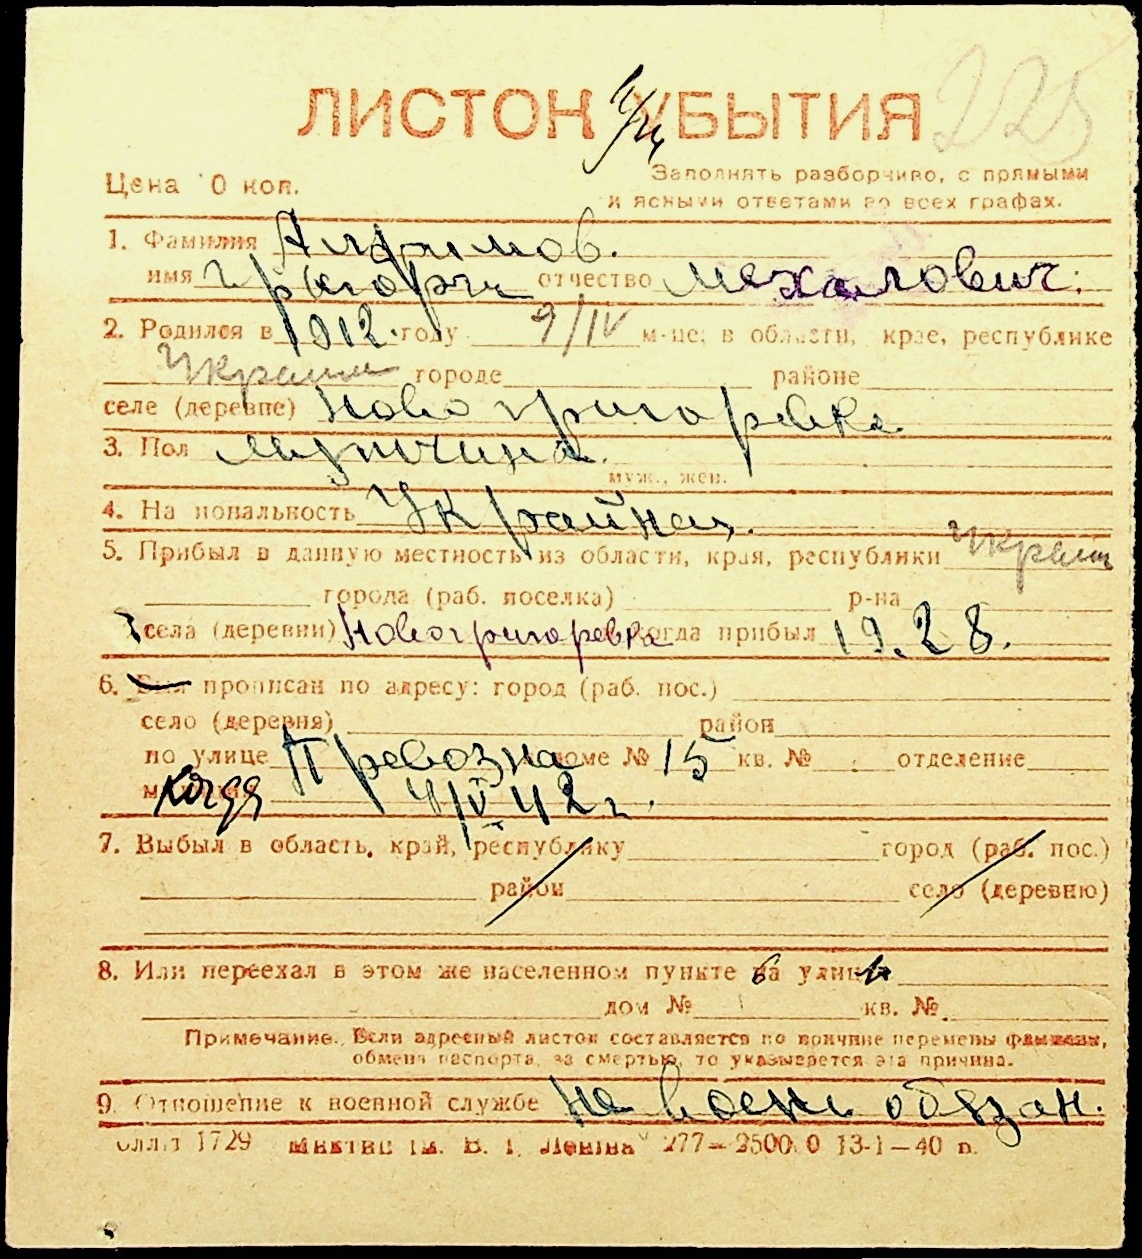 225
ЛИСТОК УБЫТИЯ
Цена 10 коп.
Заполнять разборчиво, с прямыми
и ясными ответами во всех графах.
1. Фамилия Алфимов.
имя Григорий отчество Мехалович.
2. Родился в 1912. году 9/IV м-це; в области, крае, республике
Украин городе районе
селе (деревне) Новогригоревка
3. Пол мужчина.
муж., жен.
4. Национальность Украйнец.
5. Прибыл в данную местность из области, края, республики Украин
города (раб. поселка) р-на
села (деревни) Новогригоревка когда прибыл 19.28.
6. Был прописан по адресу: город (раб. пос.)
село (деревня) район
по улице Превозна доме № 15 кв. № отделение
когда 4/IV 42 г.
7. Выбыл в область, край, республику город (раб. пос.)
район село (деревню)
8. Или переехал в этом же населенном пункте на улицу
дом № кв. №
Примечание. Если адресный листок составляется по причине перемены фамилии,
обмена паспорта, за смертью, то указывается эта причина.
9. Отношение к военной службе не воен обязан.
1729 В. І. Леніна 277—2500.0 13-1—40 п.